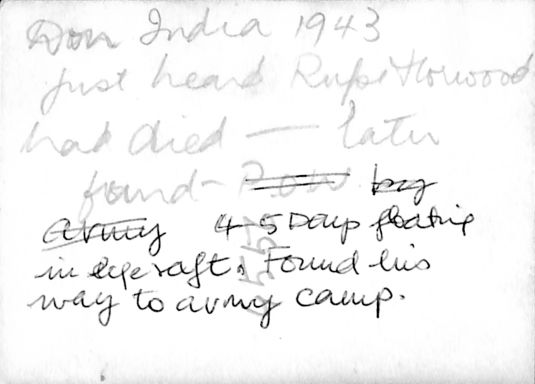 Don India 1943
just heard Rufs Horwood
had died — later
found - POW by
army 4-5 Days floating
in life raft. Found his
way to army camp.